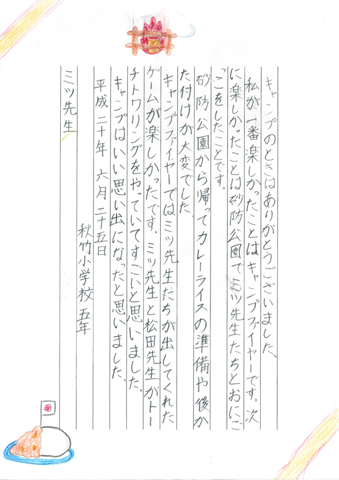 キャンプのときはありがとうございました。
私が一番楽しかったことはキャンプファイヤーです。次
に楽しかったことは砂防公園でミツ先生たちとおにご
っこをしたことです。
砂防公園から帰ってカレーライスの準備や後か
た付けが大変でした
キャンプファイヤーではミツ先生たちが出してくれた
ゲームが楽しかったです。ミツ先生と松田先生がトー
チトワリングをやっていてすごいと思いました。
キャンプはいい思い出になったと思いました。
平成二十年 六月二十五日
秋竹小学校 五年
ミツ先生